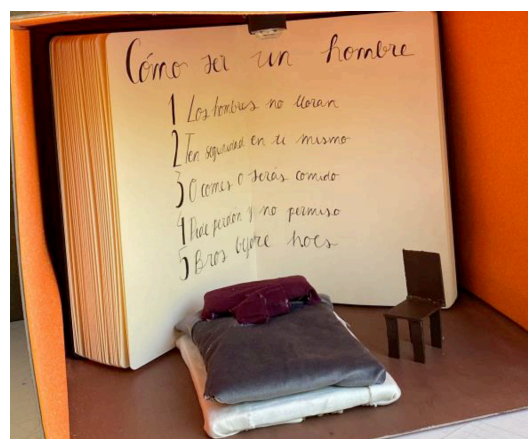 Cómo ser un hombre
1 Los hombres no lloran
2 Ten seguridad en ti mismo
3 O comes o serás comido
4 Pide perdón y no permiso
5 Bros before hoes